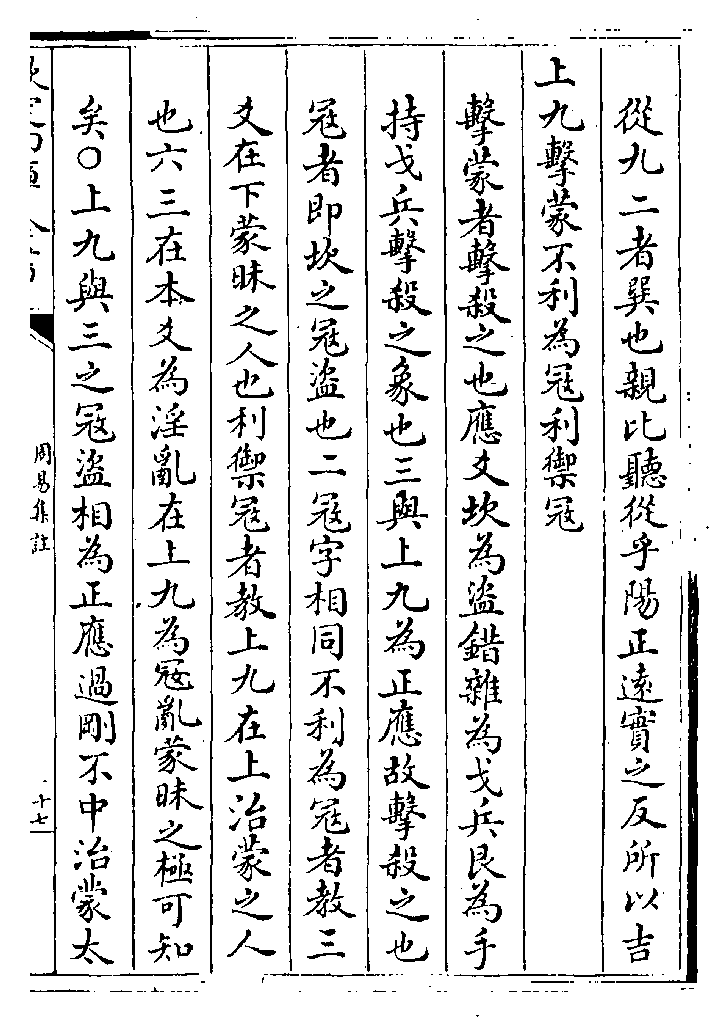 從九二者巽也親比聽從乎陽正遠實之反所以吉
上九擊蒙不利為寇利禦寇
擊蒙者擊殺之也應爻坎為盜錯離為戈兵艮為手
持戈兵擊殺之象也三與上九為正應故擊殺之也
寇者即坎之寇盜也二寇字相同不利為寇者教三
爻在下蒙昧之人也利禦寇者教上九在上治蒙之人
也六三在本爻為淫亂在上九為寇亂蒙昧之極可知
矣○上九與三之寇盜相為正應過剛不中治蒙太
周易集註
十七